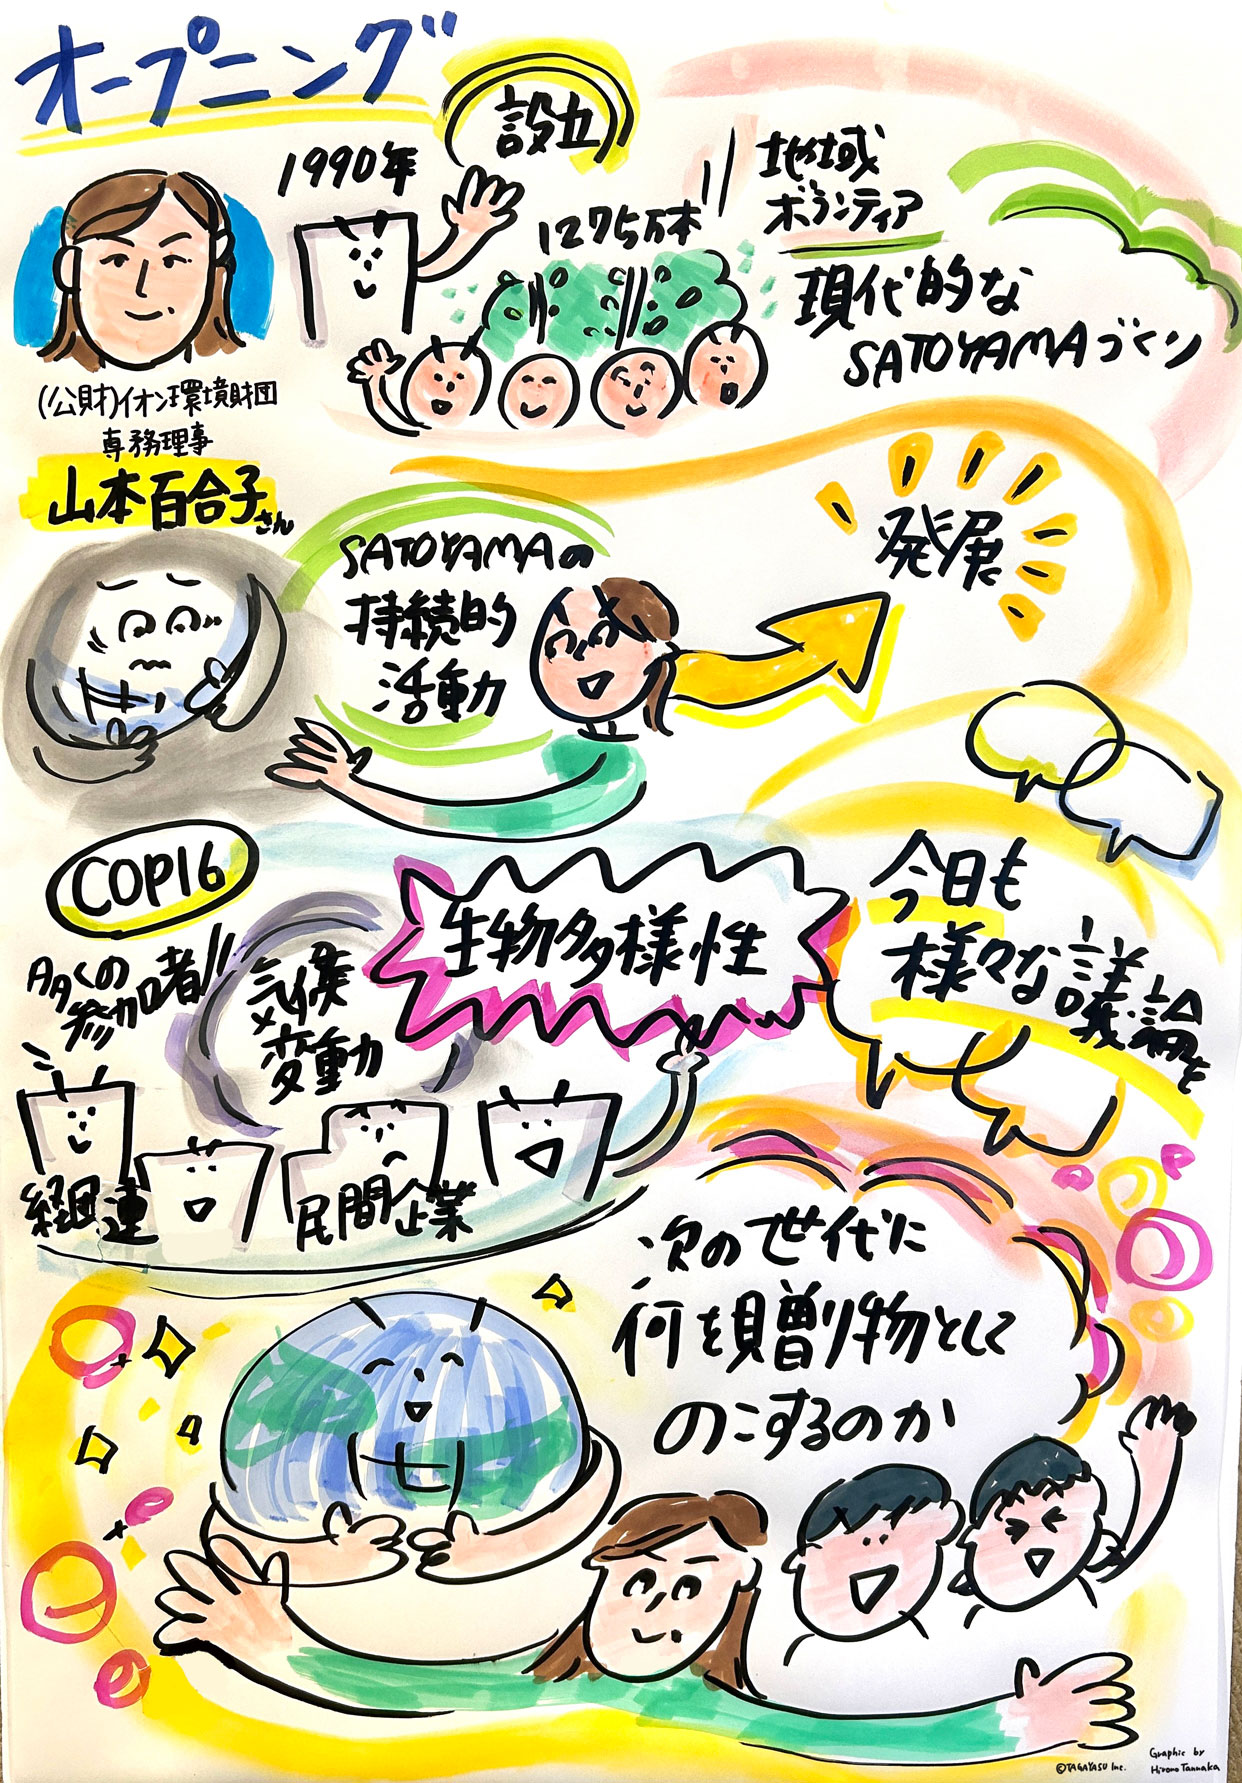 オープニング
設立
1990年
1275万本
地域
ボランティア
現代的な
SATOYAMAづくり
(公財)イオン環境財団
専務理事
山本百合子さん
SATOYAMAの
持続的
活動
発展
COP16
多くの
参加者!!
気候
変動
生物多様性
今日も
様々な議論を
経団連
民間企業
次の世代に
何を贈り物として
のこするのか
©TAGAYASU Inc.
Graphic by
Hirono Tannaka